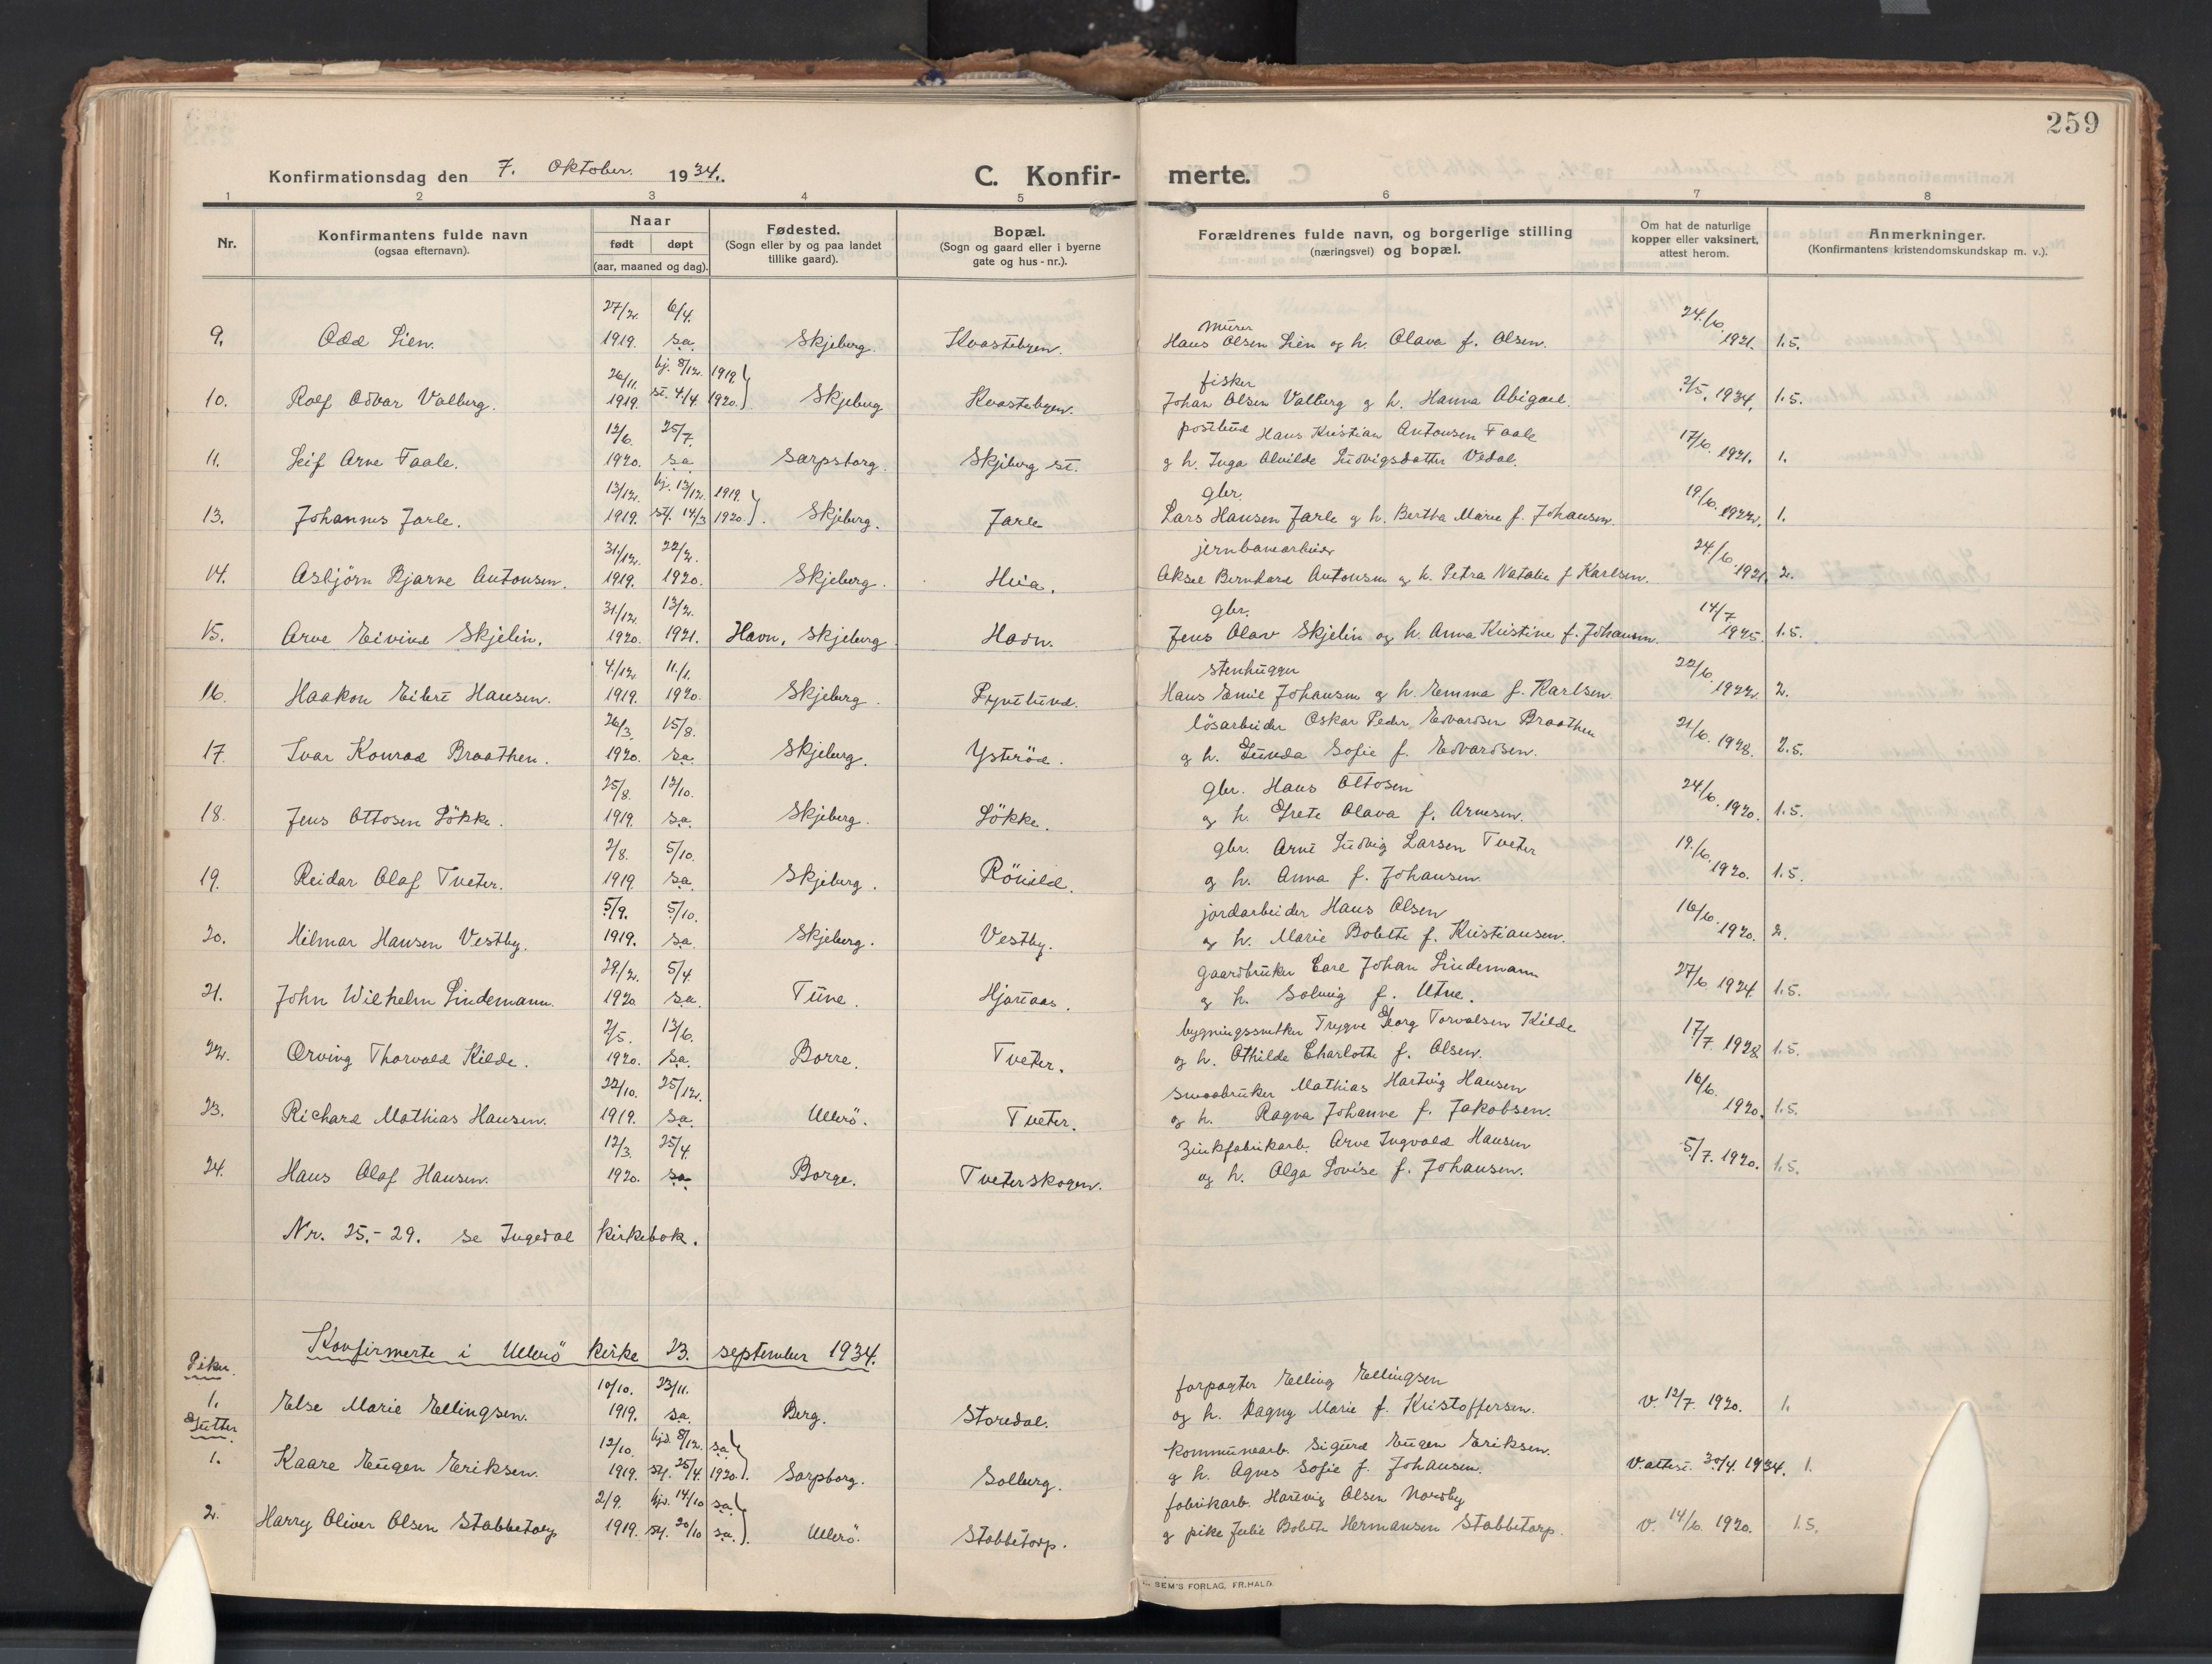 259
Konfirmationsdag den 7. Oktober. 1934.
C. Konfir- merte.
1 2 3 4 5 6 7 8
Nr.
Konfirmantens fulde navn
(ogsaa efternavn).
Naar
født døpt
(aar, maaned og dag).
Fødested.
(Sogn eller by og paa landet
tillike gaard).
Bopæl.
(Sogn og gaard eller i byerne
gate og hus-nr.).
Forældrenes fulde navn, og borgerlige stilling
(næringsvei) og bopæl.
Om hat de naturlige
kopper eller vaksinert,
attest herom.
Anmerkninger.
(Konfirmantens kristendomskundskap m. v.).
27/2. 6/4. murer 24./6.
9. Odd Lien. 1919. s.a. Skjeberg. Kvastebyen. Hans Olsen Lien og h. Olava f. Olsen. 1921. 1.5.
26/11. hj. 8/12. 1919 fisker
10. Rolf Odvar Valberg. 1919. st. 4/4. 1920. Skjeberg Kvastebyen. Johan Olsen Valberg g h. Hanna Abigael. 2/5. 1934. 1.5.
12/6. 25/7. postbud Hans Kristian Antonsen Taale
11. Leif Arne Taale. 1920. s.a. Sarpsborg. Skjeberg st. g h. Inga Alvilde Ludvigsdatter Vedal. 17/6. 1921. 1.
13/12. hj. 13/12. 1919. gbr. 19/6.
13. Johannes Jarle. 1919. stf. 14/3 1920. Skjeberg. Jarle Lars Hansen Jarle g h. Bertha Marie f. Johansen. 1922. 1.
31/12. 22/2. jernbanearbeider 24./6.
14. Asbjörn Bjarne Antonsen. 1919. 1920. Skjeberg. Hvia. Aksel Bernhard Antonsen g h. Petra Natalie f Karlsen. 1921. 2.
31/12. 13/2. gbr. 14/7
15. Arve Eivind Skjelin. 1920. 1921. Havn, Skjeberg. Havn. Jens Olav Skjelin og h. Anna Kristine f. Johansen. 1925. 1.5.
4./12. 11./1. stenhugger 22/6.
16. Haakon Eilert Hansen. 1919. 1920. Skjeberg. Hans Emil Johansen g h. Emma f. Karlsen. 1922. 2.
26/3. 15/8. lösarbeider Oskar Peder Edvardsen Braathen
17. Ivar Konrad Braathen. 1920. s.a. Skjeberg. Ysteröd. g h. Gunda Sofie f. Edvardsen. 21/6. 1928. 2.5.
25/8. 12/10. gbr. Hans Ottosen 24/6.
18. Jens Ottosen Lökke. 1919. s.a. Skjeberg. Lökke. g h. Grete Olava f. Arnesen. 1920. 1.5.
2/8. 5/10. gbr. Arnt Ludvig Larsen Tveter 19./6.
19. Reidar Olaf Tveter. 1919. s.a. Skjeberg. Röněld. g h. Anna f. Johansen. 1920. 1.5.
5/9. 5/10. jordarbeider Hans Olsen 16/6.
20. Hilmar Hansen Vestby. 1919. s.a. Skjeberg. Vestby. g h. Marie Bolette f. Kristiansen. 1920. 2.
29./2. 5/4. gaardbruker Carl Johan Lindemann
21. John Wilhelm Lindemann. 1920 s.a. Tune. Hjanaas. g h. Solveig f. Utne. 27/6 1924. 1.5.
2/5. 13/6. bygningssnekker Trygve Georg Torvalsen Kilde
22. Orving Thorvald Kilde. 1920. s.a. Borre. Tveter. g h. Othilde Charlotte f. Olsen. 17/7. 1928. 1.5.
22/10. 25/12. smaabruker Mathias Hartvig Hansen 16/6.
23. Richard Mathias Hansen. 1919. s.a. Ullerö. Tveter. g h. Ragna Johanne f. Jakobsen. 1920. 1.5.
12/3. 25/4. Zinkfabrikarb. Arve Ingvald Hansen
24. Hans Olaf Hansen. 1920. s.a. Borge. Tveterskogen. og h. Olga Lovise f. Johansen. 5/7. 1920. 1.5.
Nr. 25.-29. se Ingedal kirkebok.
Konfirmerte i Ullerö kirke 23. september 1934.
Piker.
10/10. 23/11. forpagter Elling Ellingsen
1. Else Marie Ellingsen. 1919. s.a. Berg. Storedal. og h. Dagny Marie f. Kristoffersen. v. 12/7 1920. 1.
Gutter
12/10. hjd. 8/12. s.a. kommunearb. Sigurd Eugen Eriksen.
1. Kaare Eugen Eriksen. 1919. stf. 25/4. 1920. Sarpsborg. Solberg. g h. Agnes Sofie f. Johansen. V. attest. 30/4. 1934. 1.
2/9. hjd. 14/10 s.a. fabrikarb. Hartvig Olsen Nordby
2. Harry Oliver Olsen Stabbetorp 1919. stf. 20/10 s.a. Ullerö. Stabbetorp. g pike Julie Bolette Hermansen Stabbetorp. v. 14/6. 1920. 1.5.
SEM'S FORLAG, FR.HALD